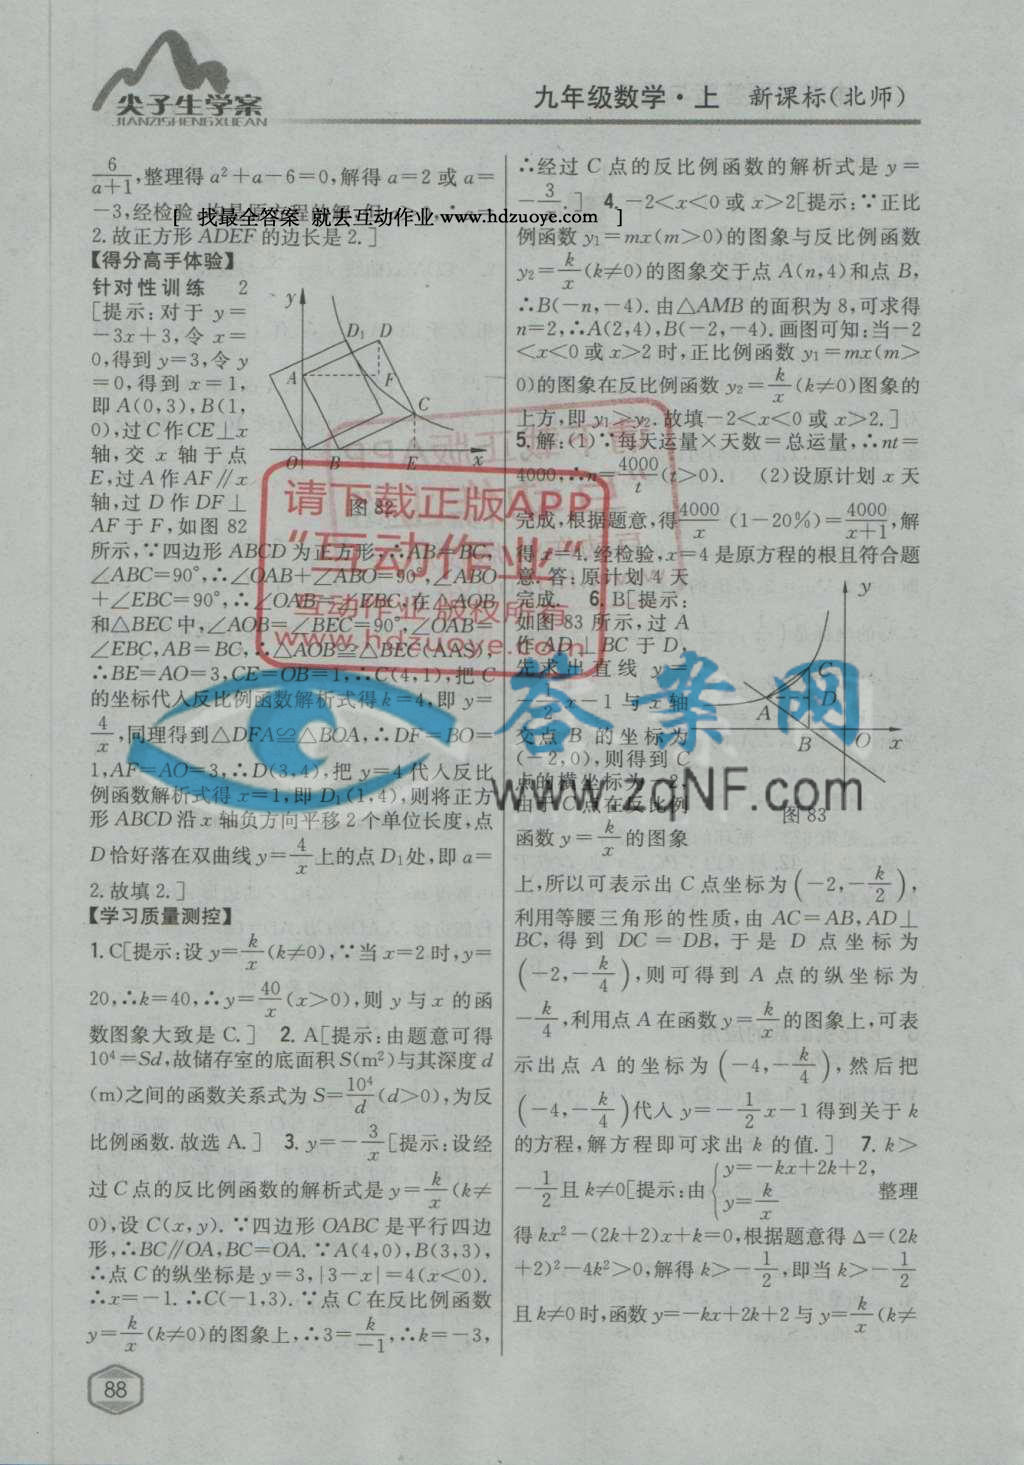 尖子生学案
JIANZISHENGXUEAN
九年级数学·上 新课标(北师)
6/(a+1),整理得 a²+a-6=0,解得 a=2 或 a=
[ 找最全答案 就去互动作业 www.hdzuoye.com ]
2.故正方形 ADEF 的边长是 2.]
【得分高手体验】
针对性训练 2
[提示:对于 y=
-3x+3,令 x=
0,得到 y=3,令 y
=0,得到 x=1,
即 A(0,3),B(1,
0),过 C 作 CE⊥x
轴,交 x 轴于点
E,过 A 作 AF∥x
轴,过 D 作 DF⊥
AF 于 F,如图 82
y
D₁ D
A F
C
O B E x
图 82
所示,∵四边形 ABCD 为正方形,∴AB=BC,
∠ABC=90°,∴∠OAB+∠ABO=90°,∠ABO
+∠EBC=90°,∴∠OAB=∠EBC,在△AOB
和△BEC 中,∠AOB=∠BEC=90°,∠OAB=
∠EBC,AB=BC,∴△AOB≌△BEC(AAS),
∴BE=AO=3,CE=OB=1,∴C(4,1),把 C
的坐标代入反比例函数解析式得 k=4,即 y=
4/x,同理得到△DFA≌△BOA,∴DF=BO=
1,AF=AO=3,∴D(3,4),把 y=4 代入反比
例函数解析式得 x=1,即 D₁(1,4),则将正方
形 ABCD 沿 x 轴负方向平移 2 个单位长度,点
D 恰好落在双曲线 y=4/x 上的点 D₁处,即 a=
2.故填 2.]
【学习质量测控】
1.C[提示:设 y=k/x(k≠0),∵当 x=2 时,y=
20,∴k=40,∴y=40/x(x>0),则 y 与 x 的函
数图象大致是 C.] 2.A[提示:由题意可得
10⁴=Sd,故储存室的底面积 S(m²)与其深度 d
(m)之间的函数关系式为 S=10⁴/d(d>0),为反
比例函数.故选 A.] 3.y=-3/x[提示:设经
过 C 点的反比例函数的解析式是 y=k/x(k≠
0),设 C(x,y).∵四边形 OABC 是平行四边
形,∴BC∥OA,BC=OA.∵A(4,0),B(3,3),
∴点 C 的纵坐标是 y=3,|3-x|=4(x<0).
∴x=-1.∴C(-1,3).∵点 C 在反比例函数
y=k/x(k≠0)的图象上,∴3=k/-1,∴k=-3,
88
∴经过 C 点的反比例函数的解析式是 y=
-3/x.] 4.-2<x<0 或 x>2[提示:∵正比
例函数 y₁=mx(m>0)的图象与反比例函数
y₂=k/x(k≠0)的图象交于点 A(n,4)和点 B,
∴B(-n,-4).由△AMB 的面积为 8,可求得
n=2,∴A(2,4),B(-2,-4).画图可知:当-2
<x<0 或 x>2 时,正比例函数 y₁=mx(m>
0)的图象在反比例函数 y₂=k/x(k≠0)图象的
上方,即 y₁>y₂.故填-2<x<0 或 x>2.]
5.解:(1)∵每天运量×天数=总运量,∴nt=
4000,∴n=4000/t(t>0). (2)设原计划 x 天
完成,根据题意,得4000/x(1-20%)=4000/(x+1),解
得 x=4.经检验,x=4 是原方程的根且符合题
意.答:原计划 4 天
完成. 6.B[提示:
如图 83 所示,过 A
作 AD⊥BC 于 D,
先求出直线 y=
-1/2x-1 与 x 轴
交点 B 的坐标为
(-2,0),则得到 C
点的横坐标为-2,
由于 C 点在反比例
函数 y=k/x 的图象
y
C
A D
B O x
图 83
上,所以可表示出 C 点坐标为(-2,-k/2),
利用等腰三角形的性质,由 AC=AB,AD⊥
BC,得到 DC=DB,于是 D 点坐标为
(-2,-k/4),则可得到 A 点的纵坐标为
-k/4,利用点 A 在函数 y=k/x 的图象上,可表
示出点 A 的坐标为(-4,-k/4),然后把
(-4,-k/4)代入 y=-1/2x-1 得到关于 k
的方程,解方程即可求出 k 的值.] 7.k>
-1/2且 k≠0[提示:由{y=-kx+2k+2, y=k/x 整理
得 kx²-(2k+2)x+k=0,根据题意得 Δ=(2k
+2)²-4k²>0,解得 k>-1/2,即当 k>-1/2
且 k≠0 时,函数 y=-kx+2k+2 与 y=k/x(k≠
请下载正版APP
“互动作业”
互动作业 版权所有
www.hdzuoye.com
答案网
www.zqNF.com